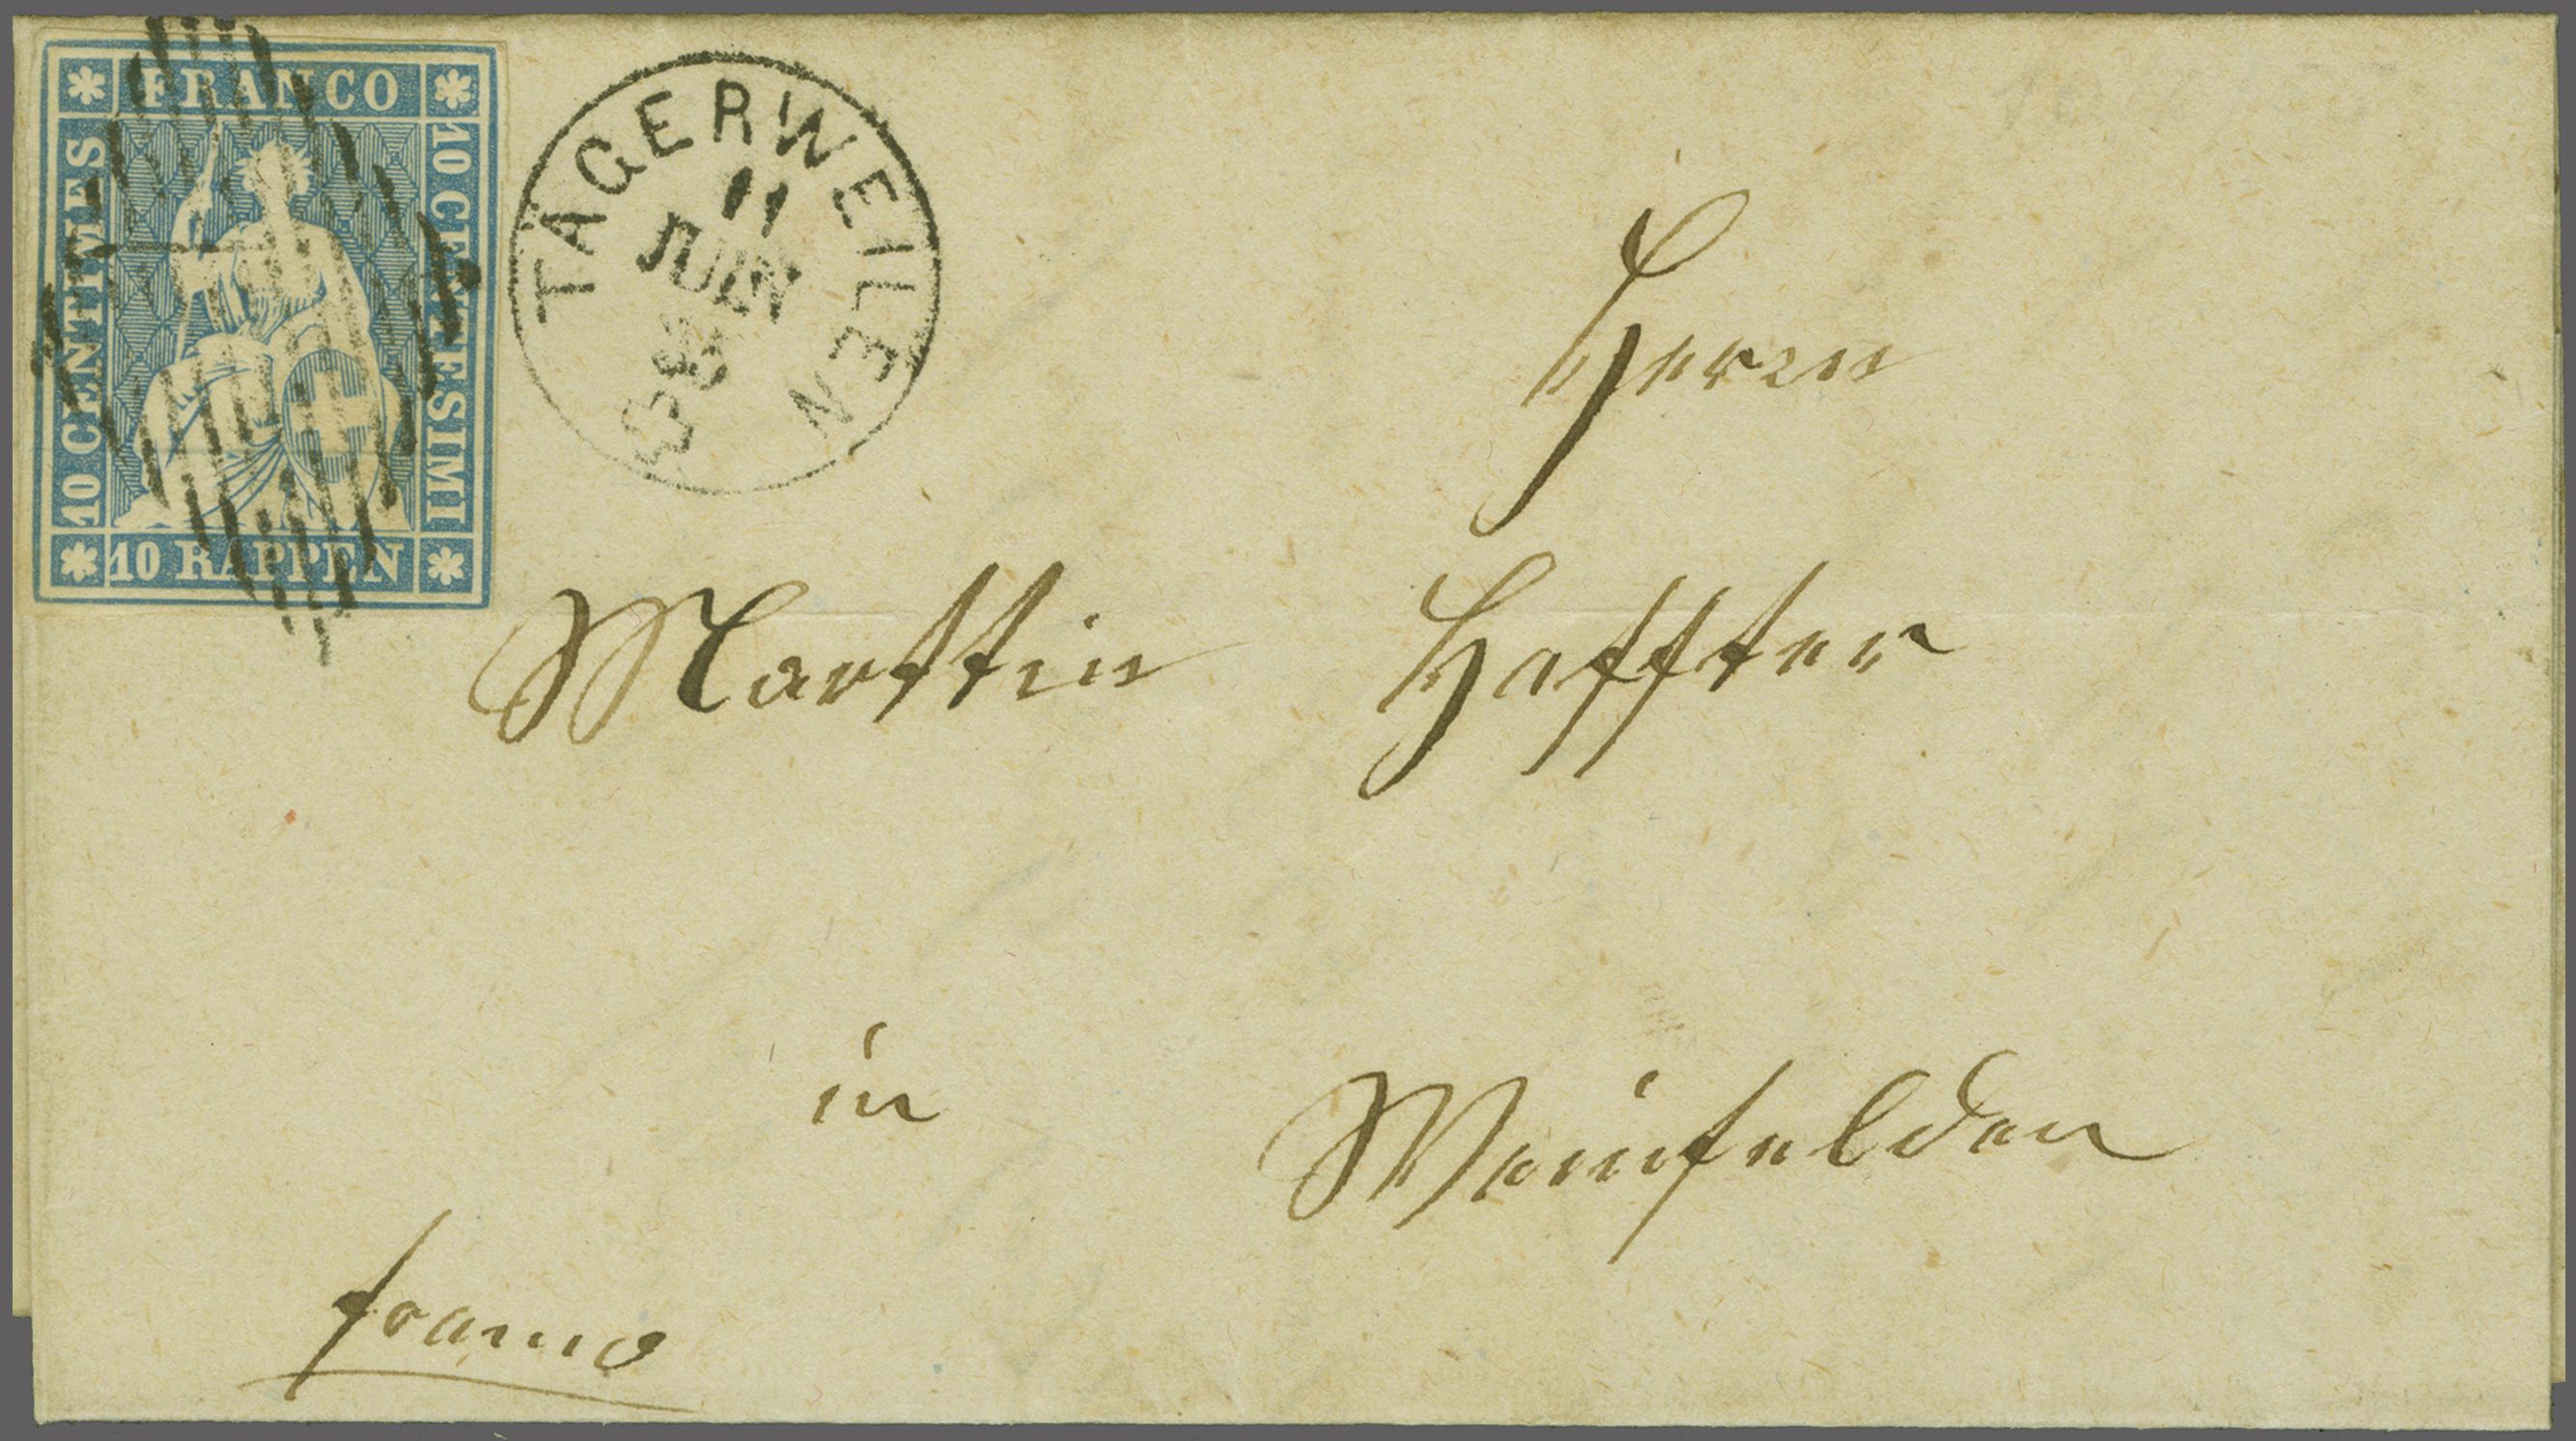 FRANCO
10 CENTIMES
10 CENTESIMI
10 RAPPEN
TÄGERWEILEN
11
JUIN
Herrn
Marttin Haffter
in Weinfelden
franco